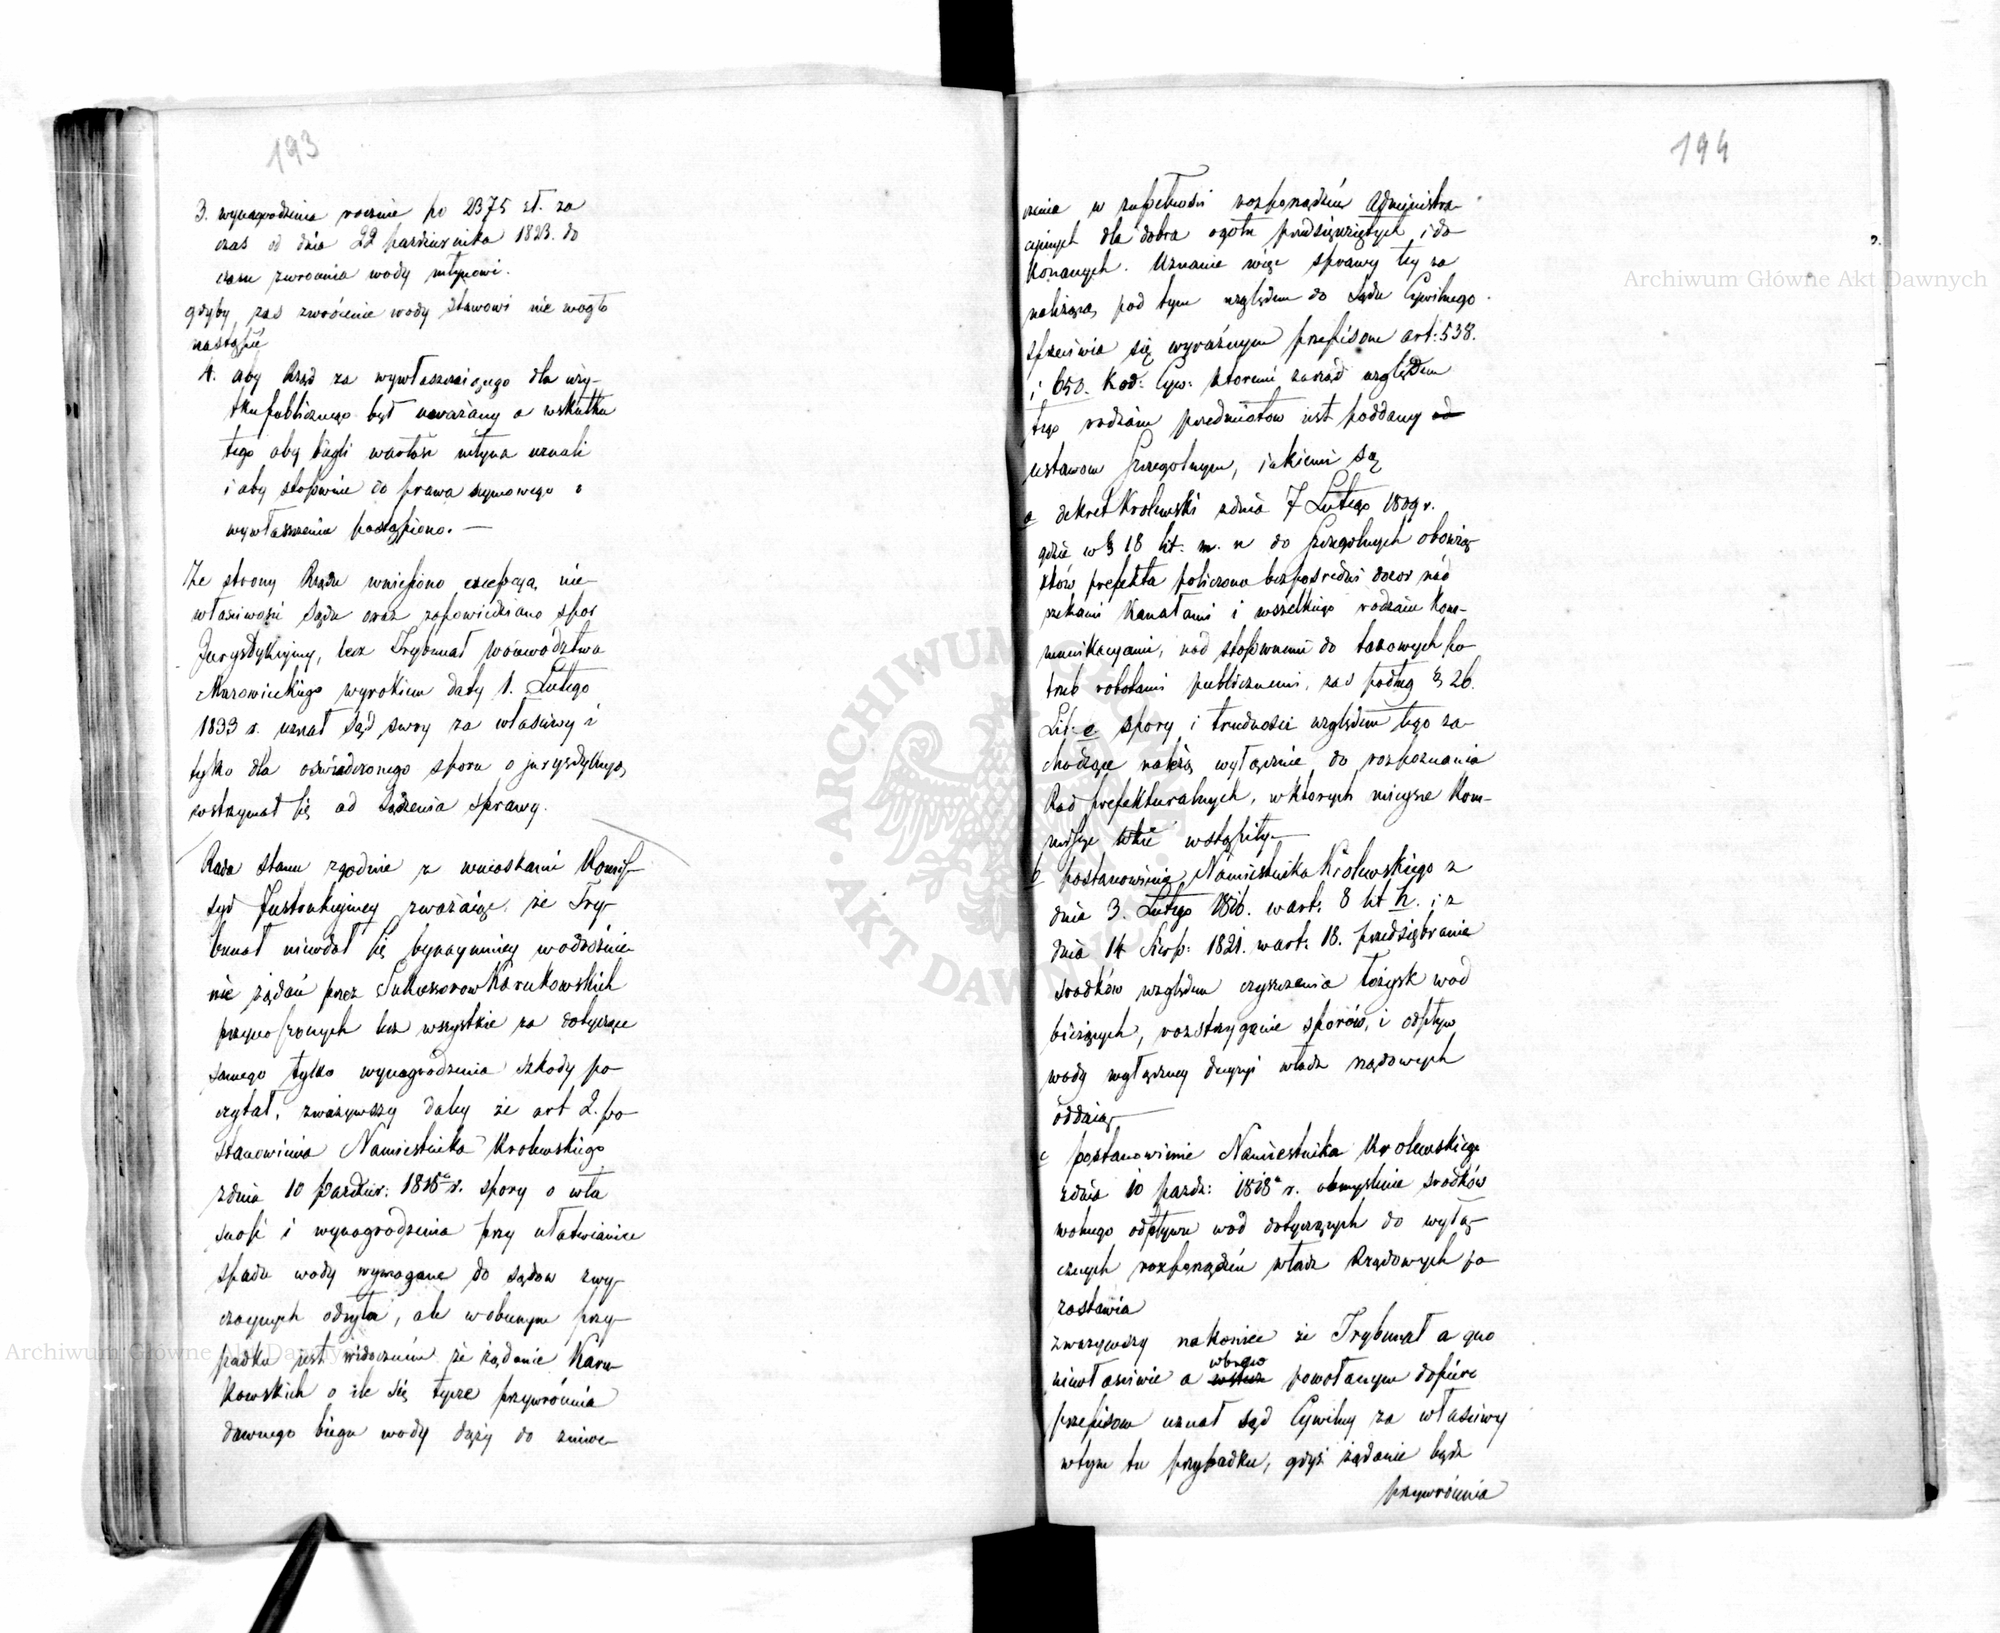 193
3. wynagrodzenia rocznie po 2375 zł. za
czas od dnia 22 pazdziernika 1823. do
czasu zwrocenia wody młynowi.
gdyby zas zwrócenie wody stawowi nie mogło
nastąpić
4. aby Rząd za wywłaszczaiącego dla uży-
tku publicznego był uważany a wskutku
tego aby biegli wartość młyna uznali
i aby stosownie do prawa seymowego o
wywłaszczeniu postąpiono. —
Ze strony Rządu wniesiono excepcyą nie-
właściwości Sądu oraz zapowiedziano spor
Jurysdykcyiny, lecz Trybunał Woiewodztwa
Mazowieckiego wyrokiem daty 1. Lutego
1833 r. uznał Sąd swoy za właściwy i
tylko dla oświadczonego sporu o jurysdykcyą
wstrzymał się od Sądzenia sprawy.
Rada Stanu zgodnie z wnioskami Kommis-
syi Justrukcyiney zważaiąc, że Try-
bunał niewdał się bynaymniey w odróżnie-
nie żądań przez Sukcessorow Karukowskich
przynoszonych lecz wszystkie za dotyczące
samego tylko wynagrodzenia szkody po-
czytał, zważywszy daley że art 2. po-
stanowienia Namiestnika Krolewskiego
zdnia 10 Pazdzier: 1818o r. spory o wła
sność i wynagrodzenia przy ułatwianiu
spadu wody wymagane do Sądow zwy-
czaynych odsyła, ale w obecnym przy-
padku jest widocznem że żądanie Karu-
kowskich o ile się tycze przywrócenia
dawnego biegu wody dąży do zniwe-
194
czenia w zupełności rozporządzeń Administra-
cyjnych dla dobra ogółu przedsięwziętych i do-
konanych. Uznanie więc sprawy tey za
należącą pod tym względem do Sądu Cywilnego
sprzeciwia się wyraźnym przepisom art: 538.
i 650. Kod: Cyw: ktoremi zarząd względem
tego rodzaiu przedmiotow iest poddany od
ustawom szczegolnym, iakiemi są
a dekret Krolewski zdnia 7 Lutego 1809 r.
gdzie w § 18 lit: m. n do szczegolnych obowiąz-
ków prefekta policzono bezpośredni dozor nad
rzekami Kanałami i wszelkiego rodzaiu Kom-
munikacyami, nad stosownemi do takowych po-
trzeb robotami publicznemi, zas podług § 26.
Lit: e. spory i trudności względem tego za-
chodzące należą wyłącznie do rozpoznania
Rad prefekturalnych, w ktorych mieysce Kom-
missye wstąpiły—
b postanowienia Namiestnika Krolewskiego z
dnia 3. Lutego 1816. w art: 8 lit h. i z
dnia 14 Sierp: 1821. w art: 18. przedsiębranie
srodków względem czyszczenia łożysk wod
bieżących, rozstrzyganie sporów, i odpływ
wody wyłączney decyzyi władz rządowych
oddaią—
c postanowienie Namiestnika Krolewskiego
zdnia 10 pazdz: 1818o r. obmyślenie srodków
wolnego odpływu wod dotyczących do wyłą-
cznych rozporządzeń władz Rządowych po
zostawia
zwazywszy nakoniec że Trybunał a quo
niewłaściwie a wbrew powołanym dopiéro
przepisom uznał sąd Cywilny za właściwy
w tym tu przypadku, gdyż żądanie bądź
przywrócenia
ARCHIWUM GŁÓWNE AKT DAWNYCH
Archiwum Główne Akt Dawnych
Archiwum Główne Akt Dawnych